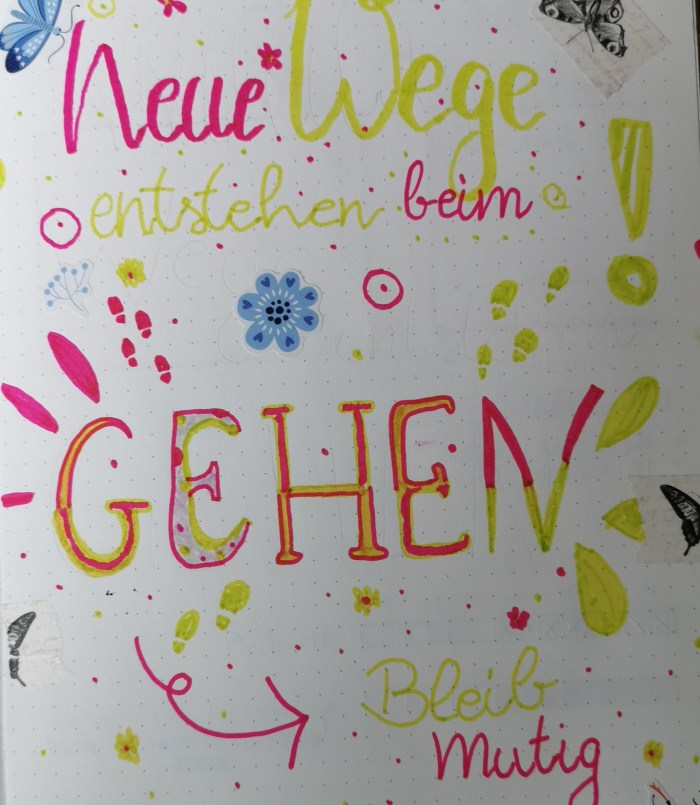 Neue Wege
entstehen beim
GEHEN
Bleib
mutig